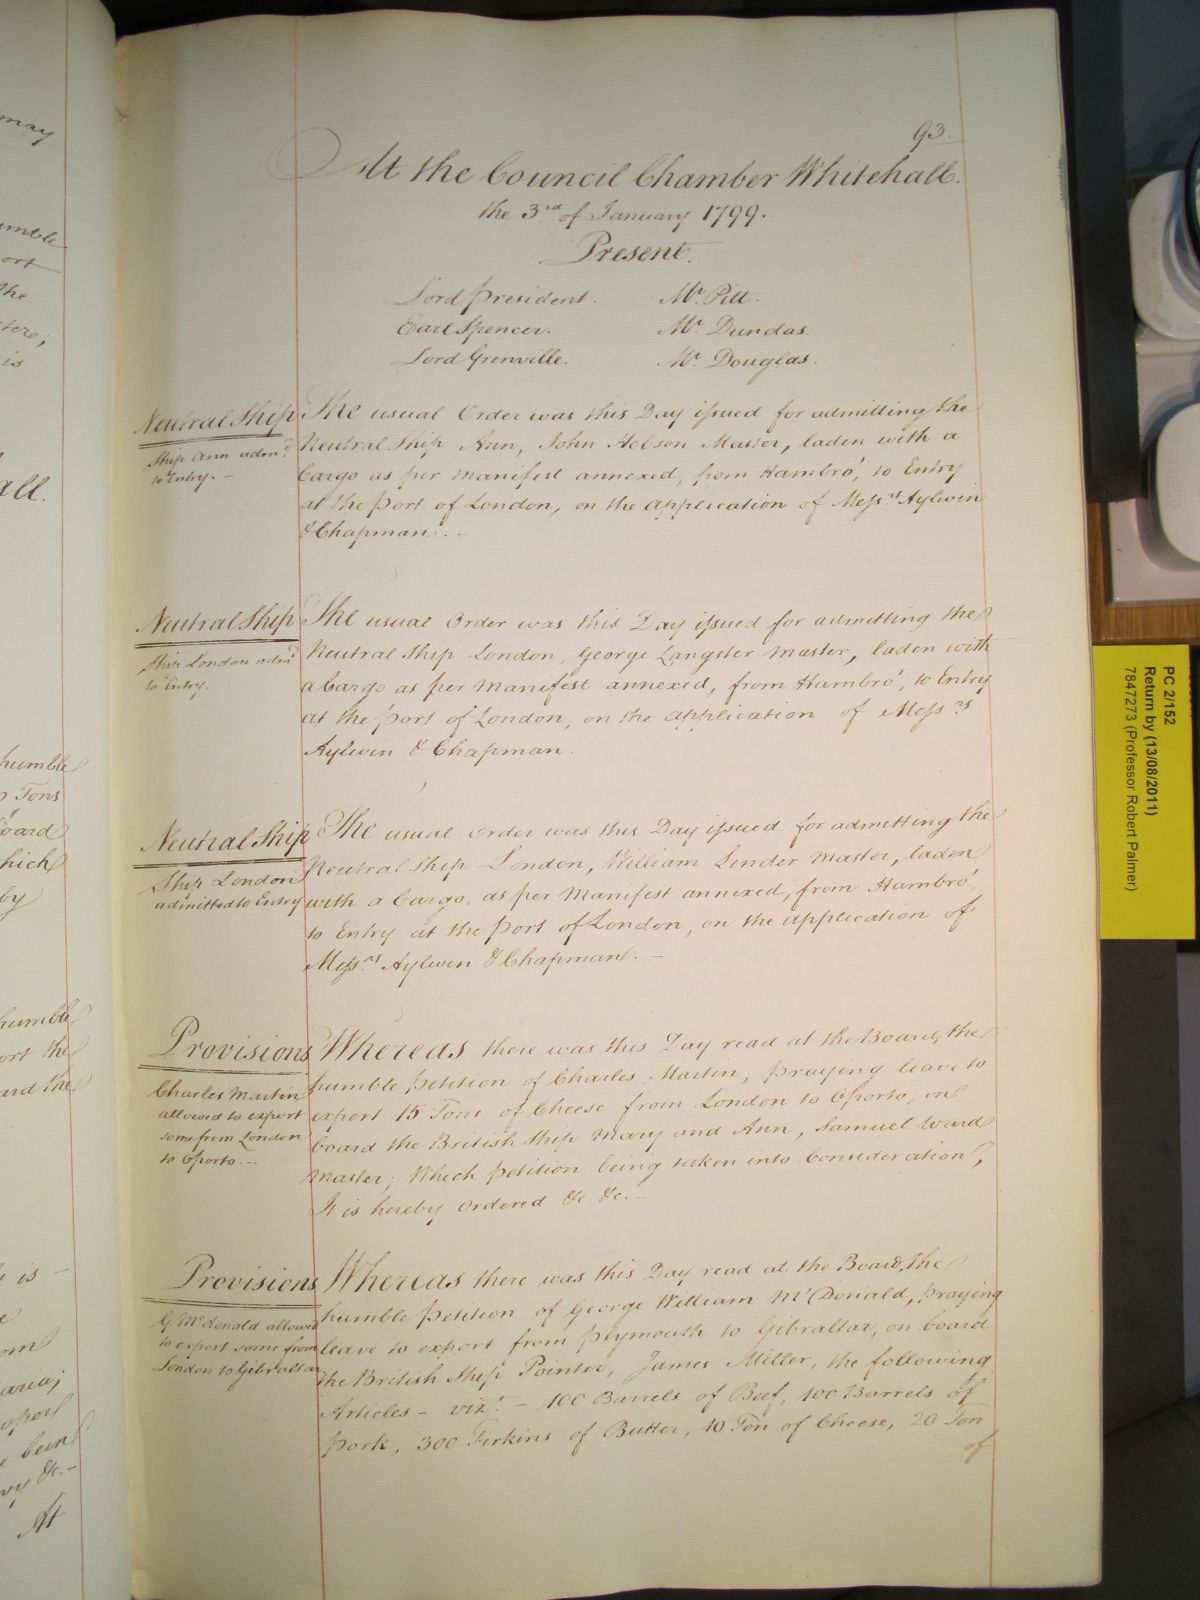 93.
At the Council Chamber Whitehall.
the 3rd of January 1799.
Present.
Lord President. Mr. Pitt.
Earl Spencer. Mr. Dundas.
Lord Grenville. Mr. Douglas.
Neutral Ship
Ship Ann admd.
to Entry. -
The usual Order was this Day issued for admitting the
Neutral Ship Ann, John Hobson Master, laden with a
Cargo as per Manifest annexed, from Hambro', to Entry
at the Port of London, on the Application of Messrs. Aylwin
& Chapman. -
Neutral Ship
Ship London admd.
to Entry.
The usual Order was this Day issued for admitting the
Neutral Ship London, George Langster Master, laden with
a Cargo as per Manifest annexed, from Hambro', to Entry
at the Port of London, on the Application of Messrs
Aylwin & Chapman.
Neutral Ship
Ship London
admitted to Entry
The usual Order was this Day issued for admitting the
Neutral Ship London, William Linder Master, laden
with a Cargo, as per Manifest annexed, from Hambro'
to Entry at the Port of London, on the Application of
Messrs. Aylwin & Chapman. -
Provisions
Charles Martin
allowed to export
some from London
to Oporto. -
Whereas there was this Day read at the Board, the
humble Petition of Charles Martin, praying leave to
export 15 Tons of Cheese from London to Oporto, on
board the British Ship Mary and Ann, Samuel Ward
Master; Which Petition being taken into Consideration,
It is hereby Ordered &c. &c. -
Provisions
G. McDonald allowed
to export some from
London to Gibraltar
Whereas there was this Day read at the Board, the
humble Petition of George William McDonald, praying
leave to export from Plymouth to Gibraltar, on board
the British Ship Pointer, James Miller, the following
Articles - vizt. - 100 Barrels of Beef, 100 Barrels of
Pork, 300 Firkins of Butter, 10 Ton of Cheese, 20 Ton
of
may
humble
ort
the
is
all.
humble
Tons
board
which
by
humble
ort the
ard the
is
been
&c. -
At
PC 2/152
Return by (13/08/2011)
7847273 (Professor Robert Palmer)